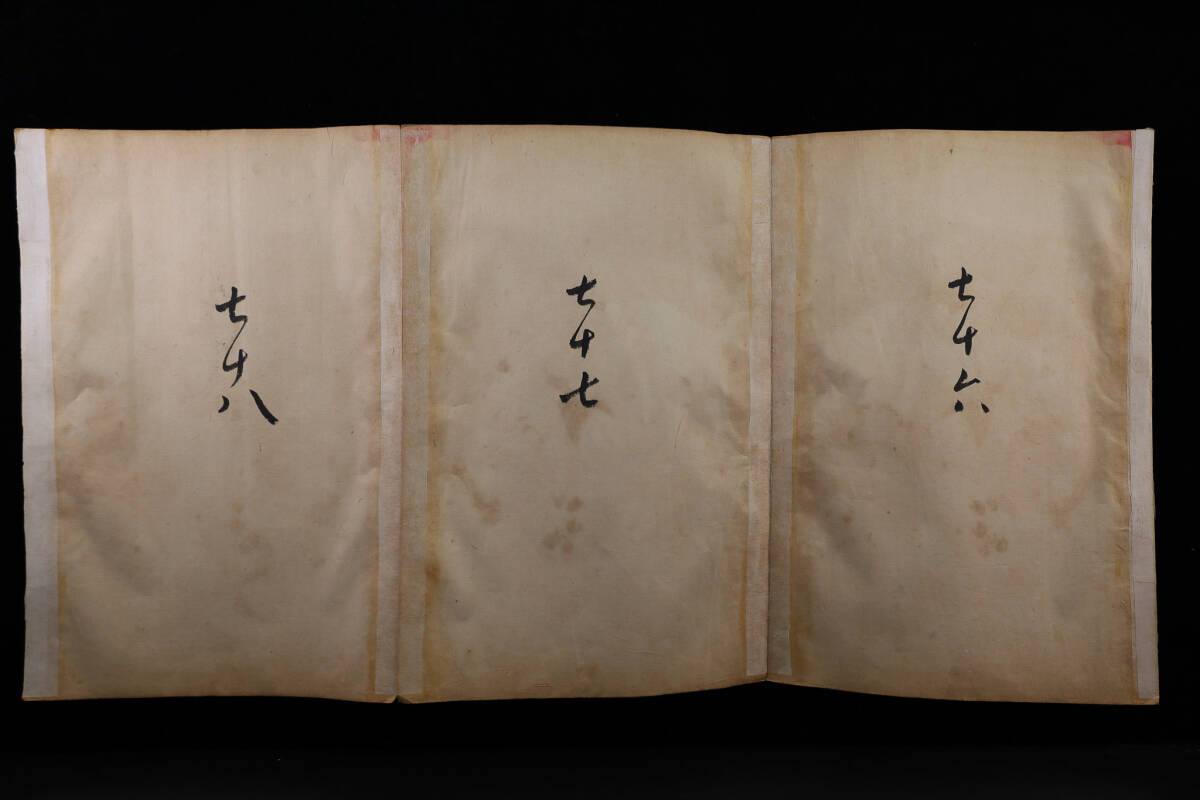 七十六
七十七
七十八